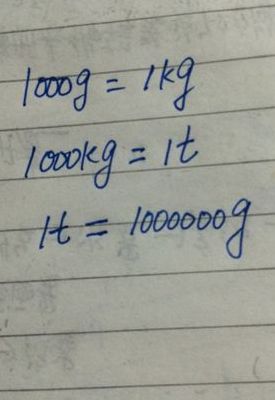 1000g = 1kg
1000kg = 1t
1t = 1000000g